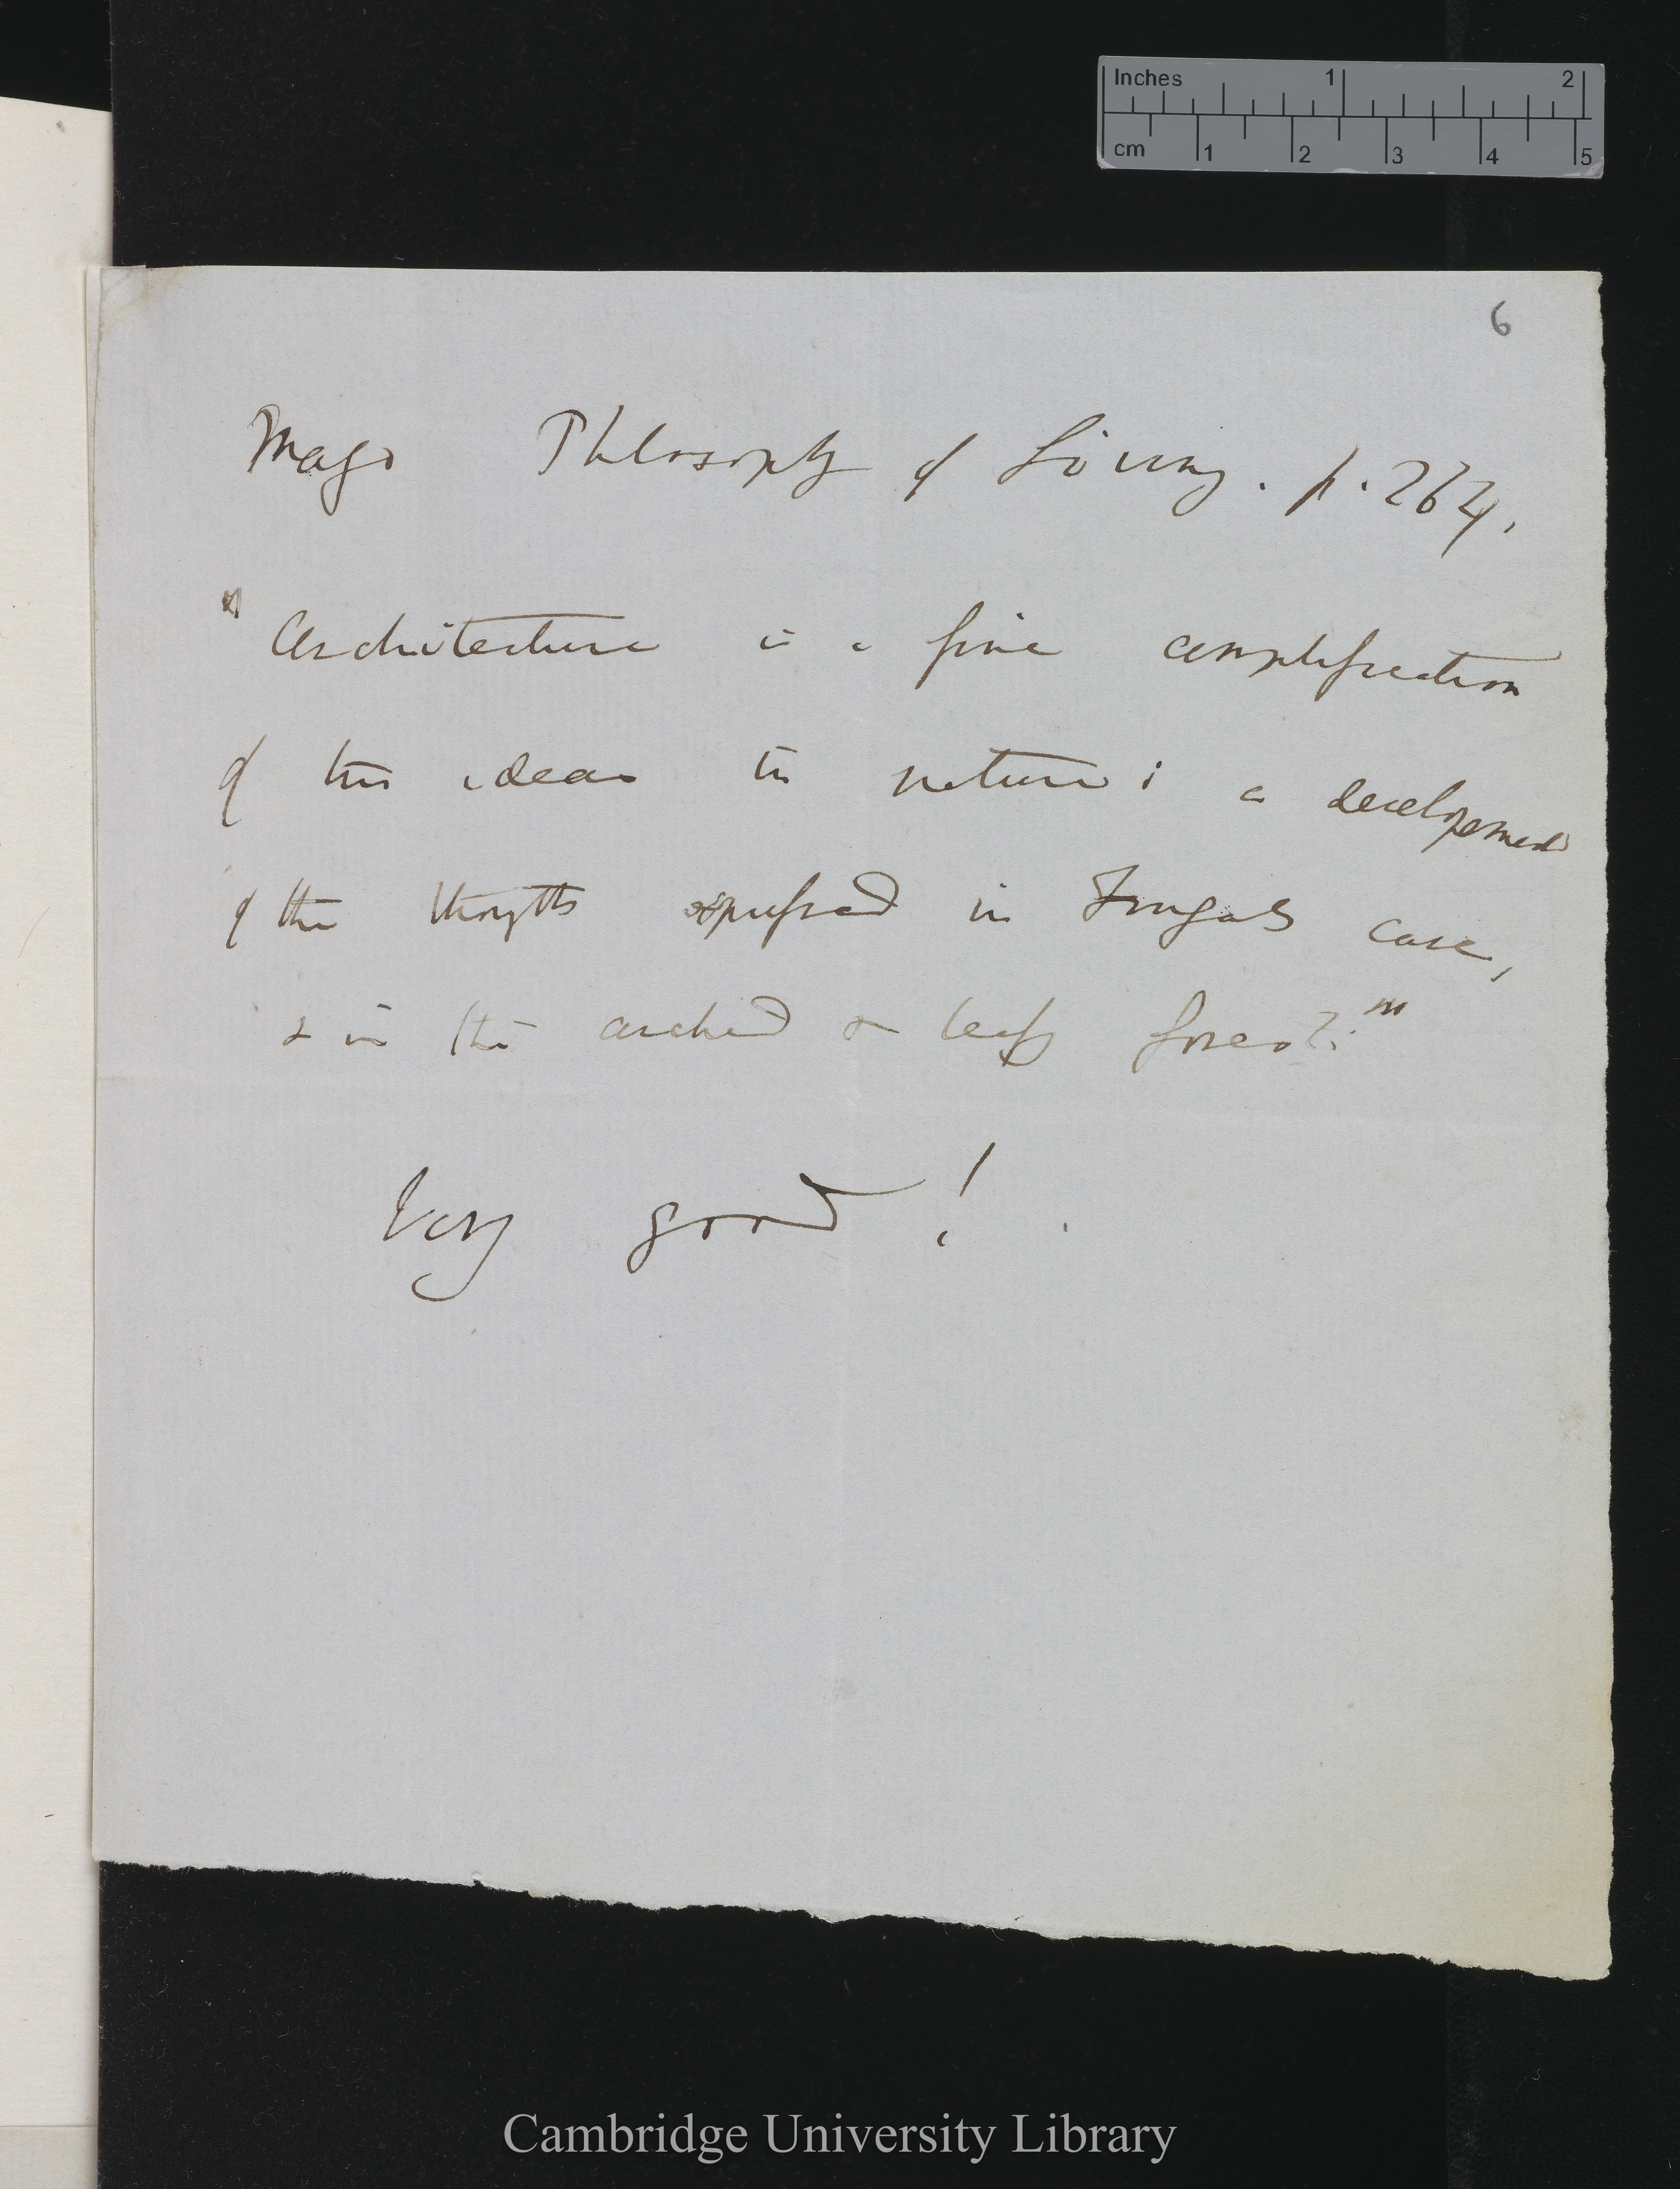 Inches 1 2
cm 1 2 3 4 5
6
Mayo Philosophy of Living. p. 264.
"Architecture is a fine amplification
of the ideas in nature; a development
of the thoughts expressed in Fingals cave,
& in the arched & leafy forest."
Very good!
Cambridge University Library